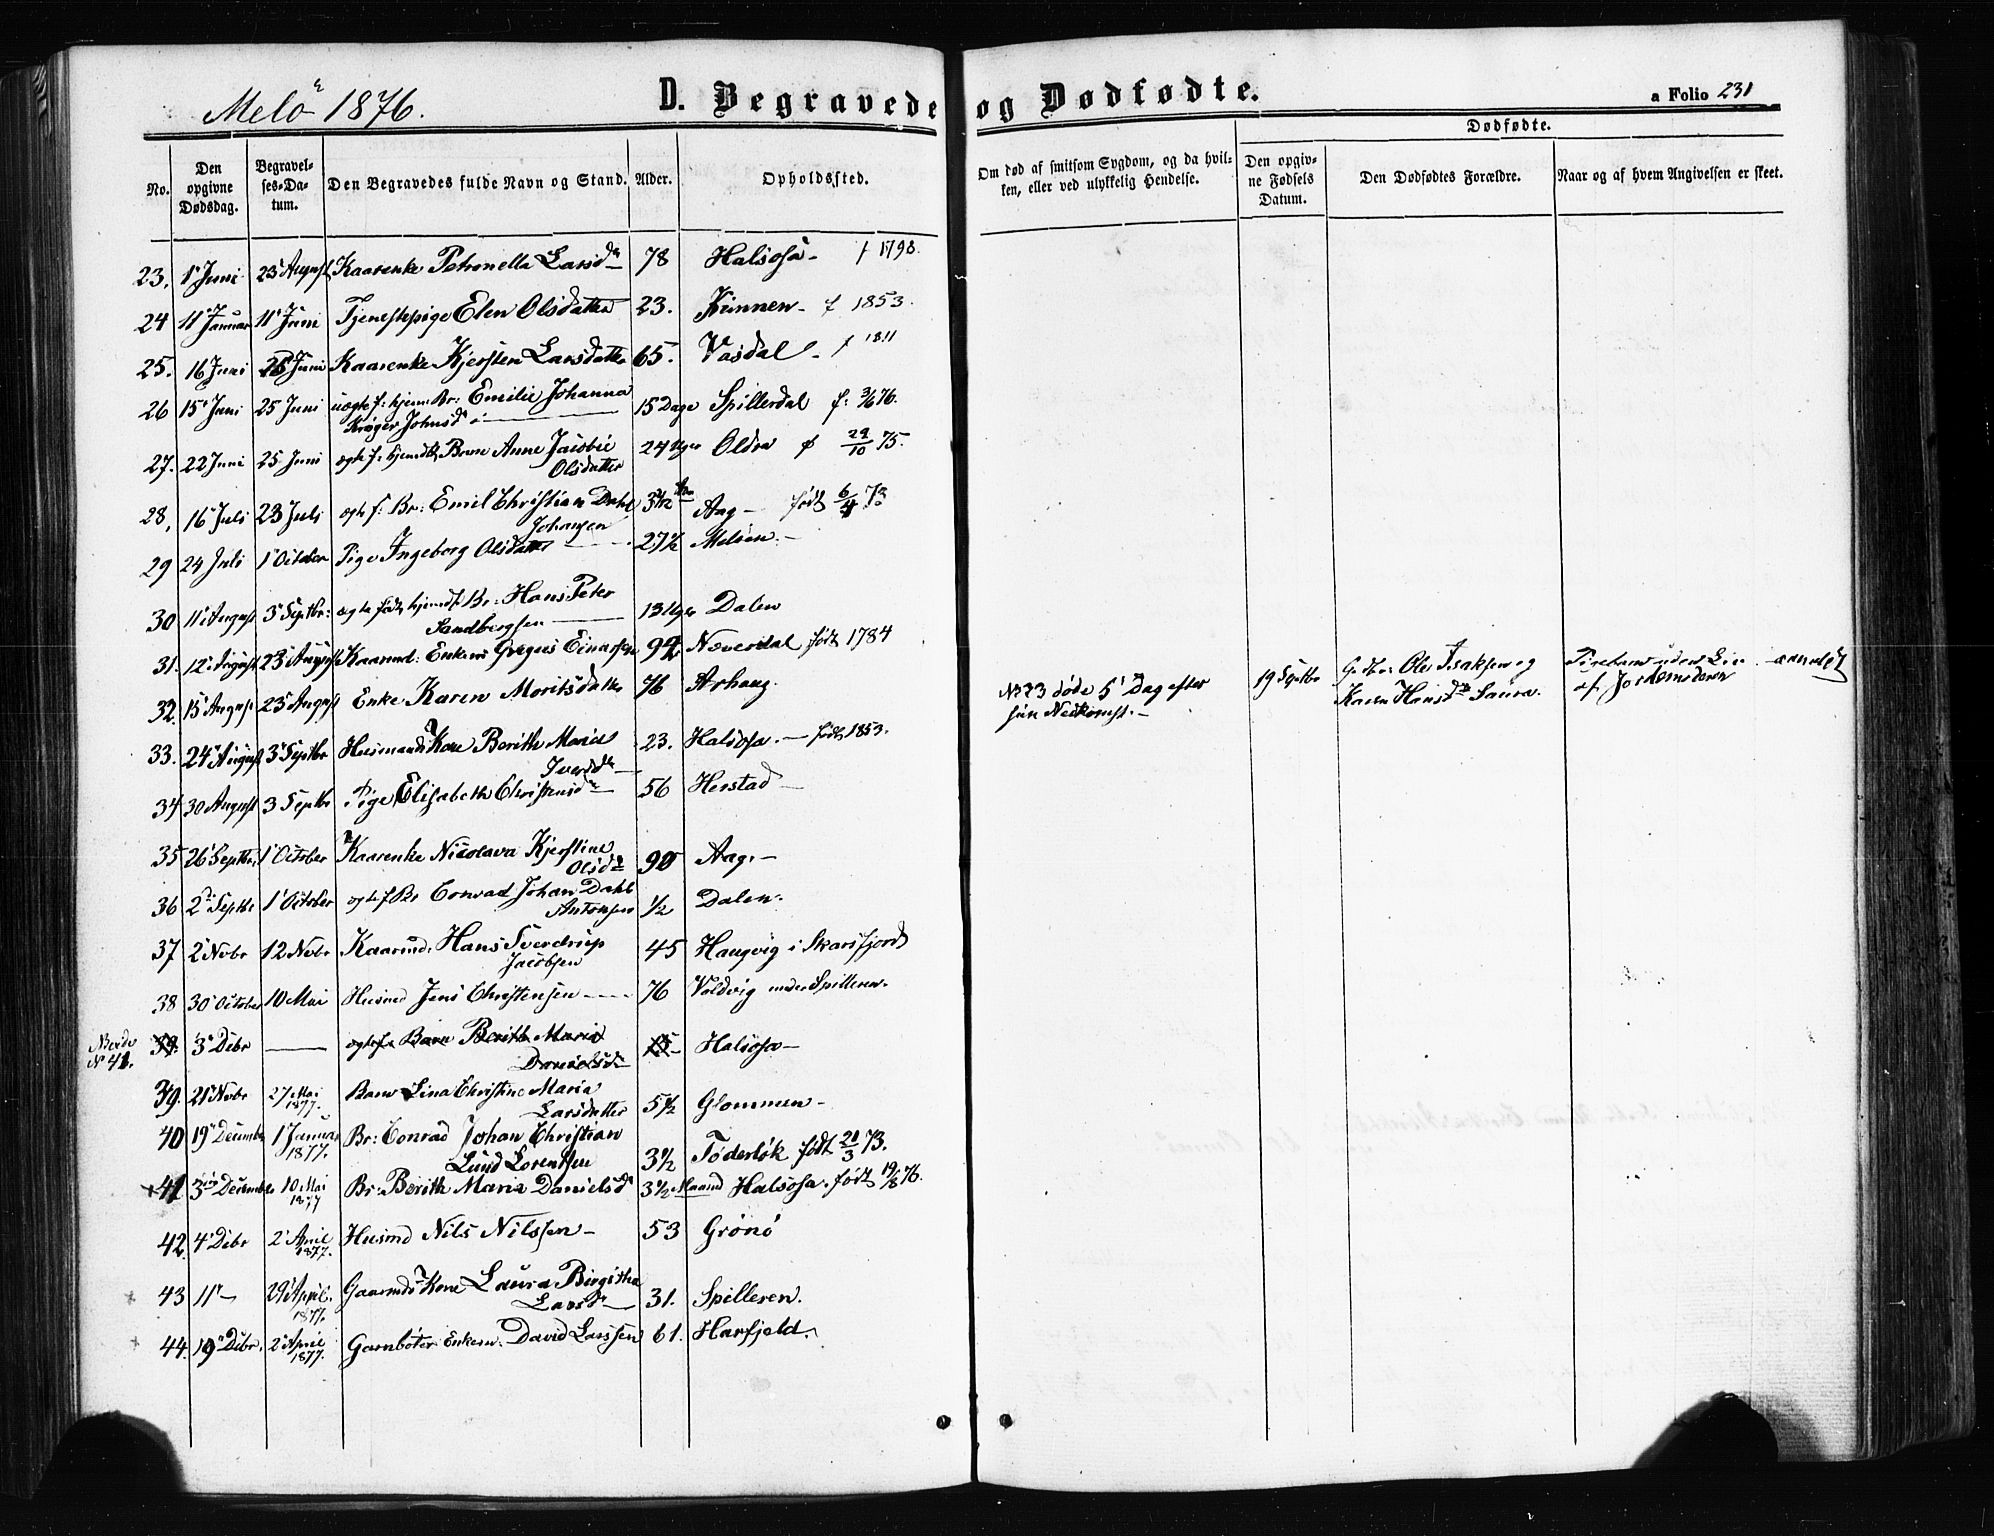 Melö 1876.
D. Begravede og Dødfødte.
a Folio 231
No.
Den opgivne Dødsdag.
Begravelses-Datum.
Den Begravedes fulde Navn og Stand.
Alder.
Opholdssted.
Om død af smitsom Sygdom, og da hvilken, eller ved ulykkelig Hendelse.
Dødfødte.
Den opgivne Fødsels Datum.
Den Dødfødtes Forældre.
Naar og af hvem Angivelsen er skeet.
23. 1 Juni 23 August Kaarenke Petronella Larsd 78 Halsosa - f 1798.
24 11 Januar 11 Juni Tjenestepige Elen Olsdatter 23. Kinnen - f 1853.
25. 16 Juni 25 Juni Kaarenke Kjersten Larsdatter 65. Vasdal - f 1811
26 15 Juni 25 Juni uægte f: hjem Br: Emilie Johanna 15 Dage Spillerdal f: 76.
Krøger Johnsd
27. 22 Juni 25 Juni ægte f. hjemdbt Barn Anne Jacobie 24 Uger Oldra f 29/10 75.
Olsdatter
28, 16 Juli 23 Juli ægte f: Br: Emil Christian Dahl 3 Aar Aag - født 6/4 73
Johansen
29 24 Juli 1 October Pige Ingeborg Olsdatter 27½ Melöen -
30 11 August 3 Septbr: ægte født hjemd Br: Hans Peter 13 Uger Dalen
Sandbergsen
31. 12 August 23 August Kaarmd: Enkem Gregus Einarsen 92 Næverdal født 1784
32. 15 August 23 August Enke Karen Moritsdatter 76 Arhaug.
No 23 døde 5 Dag efter
sin Nedkomst. -
19 Septbr
Gift: Ole Isaksen og
Karen Hansd Saura.
Pigebarn uden Liv anmeldt
af Jordemoderen
33. 24 August 3 Septbr Husmands Kone Berith Maria 23. Halsosa. - født 1853.
Iversd
34 30 August 3 Septbr Pige Elisabeth Christensd 56 Herstad -
35 26 Septbr, 1 October Kaarenke Nicolava Kjerstine 90 Aag. -
Olsd
36 2 Septbr 1 October ægte f Br Conrad Johan Dahl ½ Dalen.
Antonsen
37 2 Novbr 12 Novbr Kaarmd. Hans Sverdrup 45 Haugvig i Skarsfjord
Jacobsen
38 30 October 10 Mai Husmd Jens Christensen 76 Voldvig under Spilleren.
N 41.
39. 3 Debr ægtefø Barn Berith Maria Halsosa -
Danielsd
39. 21 Novbr 27 Mai 1877. Barn Lina Christine Maria 5½ Glommen -
Larsdatter
40 19 Decembr 1 Januar 1877. Br: Conrad Johan Christian
Lund Lorentsen 3½ Töderlök født 21/3 73.
41 3 December 10 Mai 1877 Br: Berith Maria Danielsd 3½ Maaned Halsosa. født 19/8 76.
42. 4 Debr 2 April 1877. Husmd Nils Nilssen - 53 Grönö
43 11 - 29 April. 1877. Gaarmds Kone Laura Birgitha
Larsd 31. Spilleren.
44. 19 Debr. 2 April 1877. Garnbøter Enkem. David Larssen 61. Harfjeld.